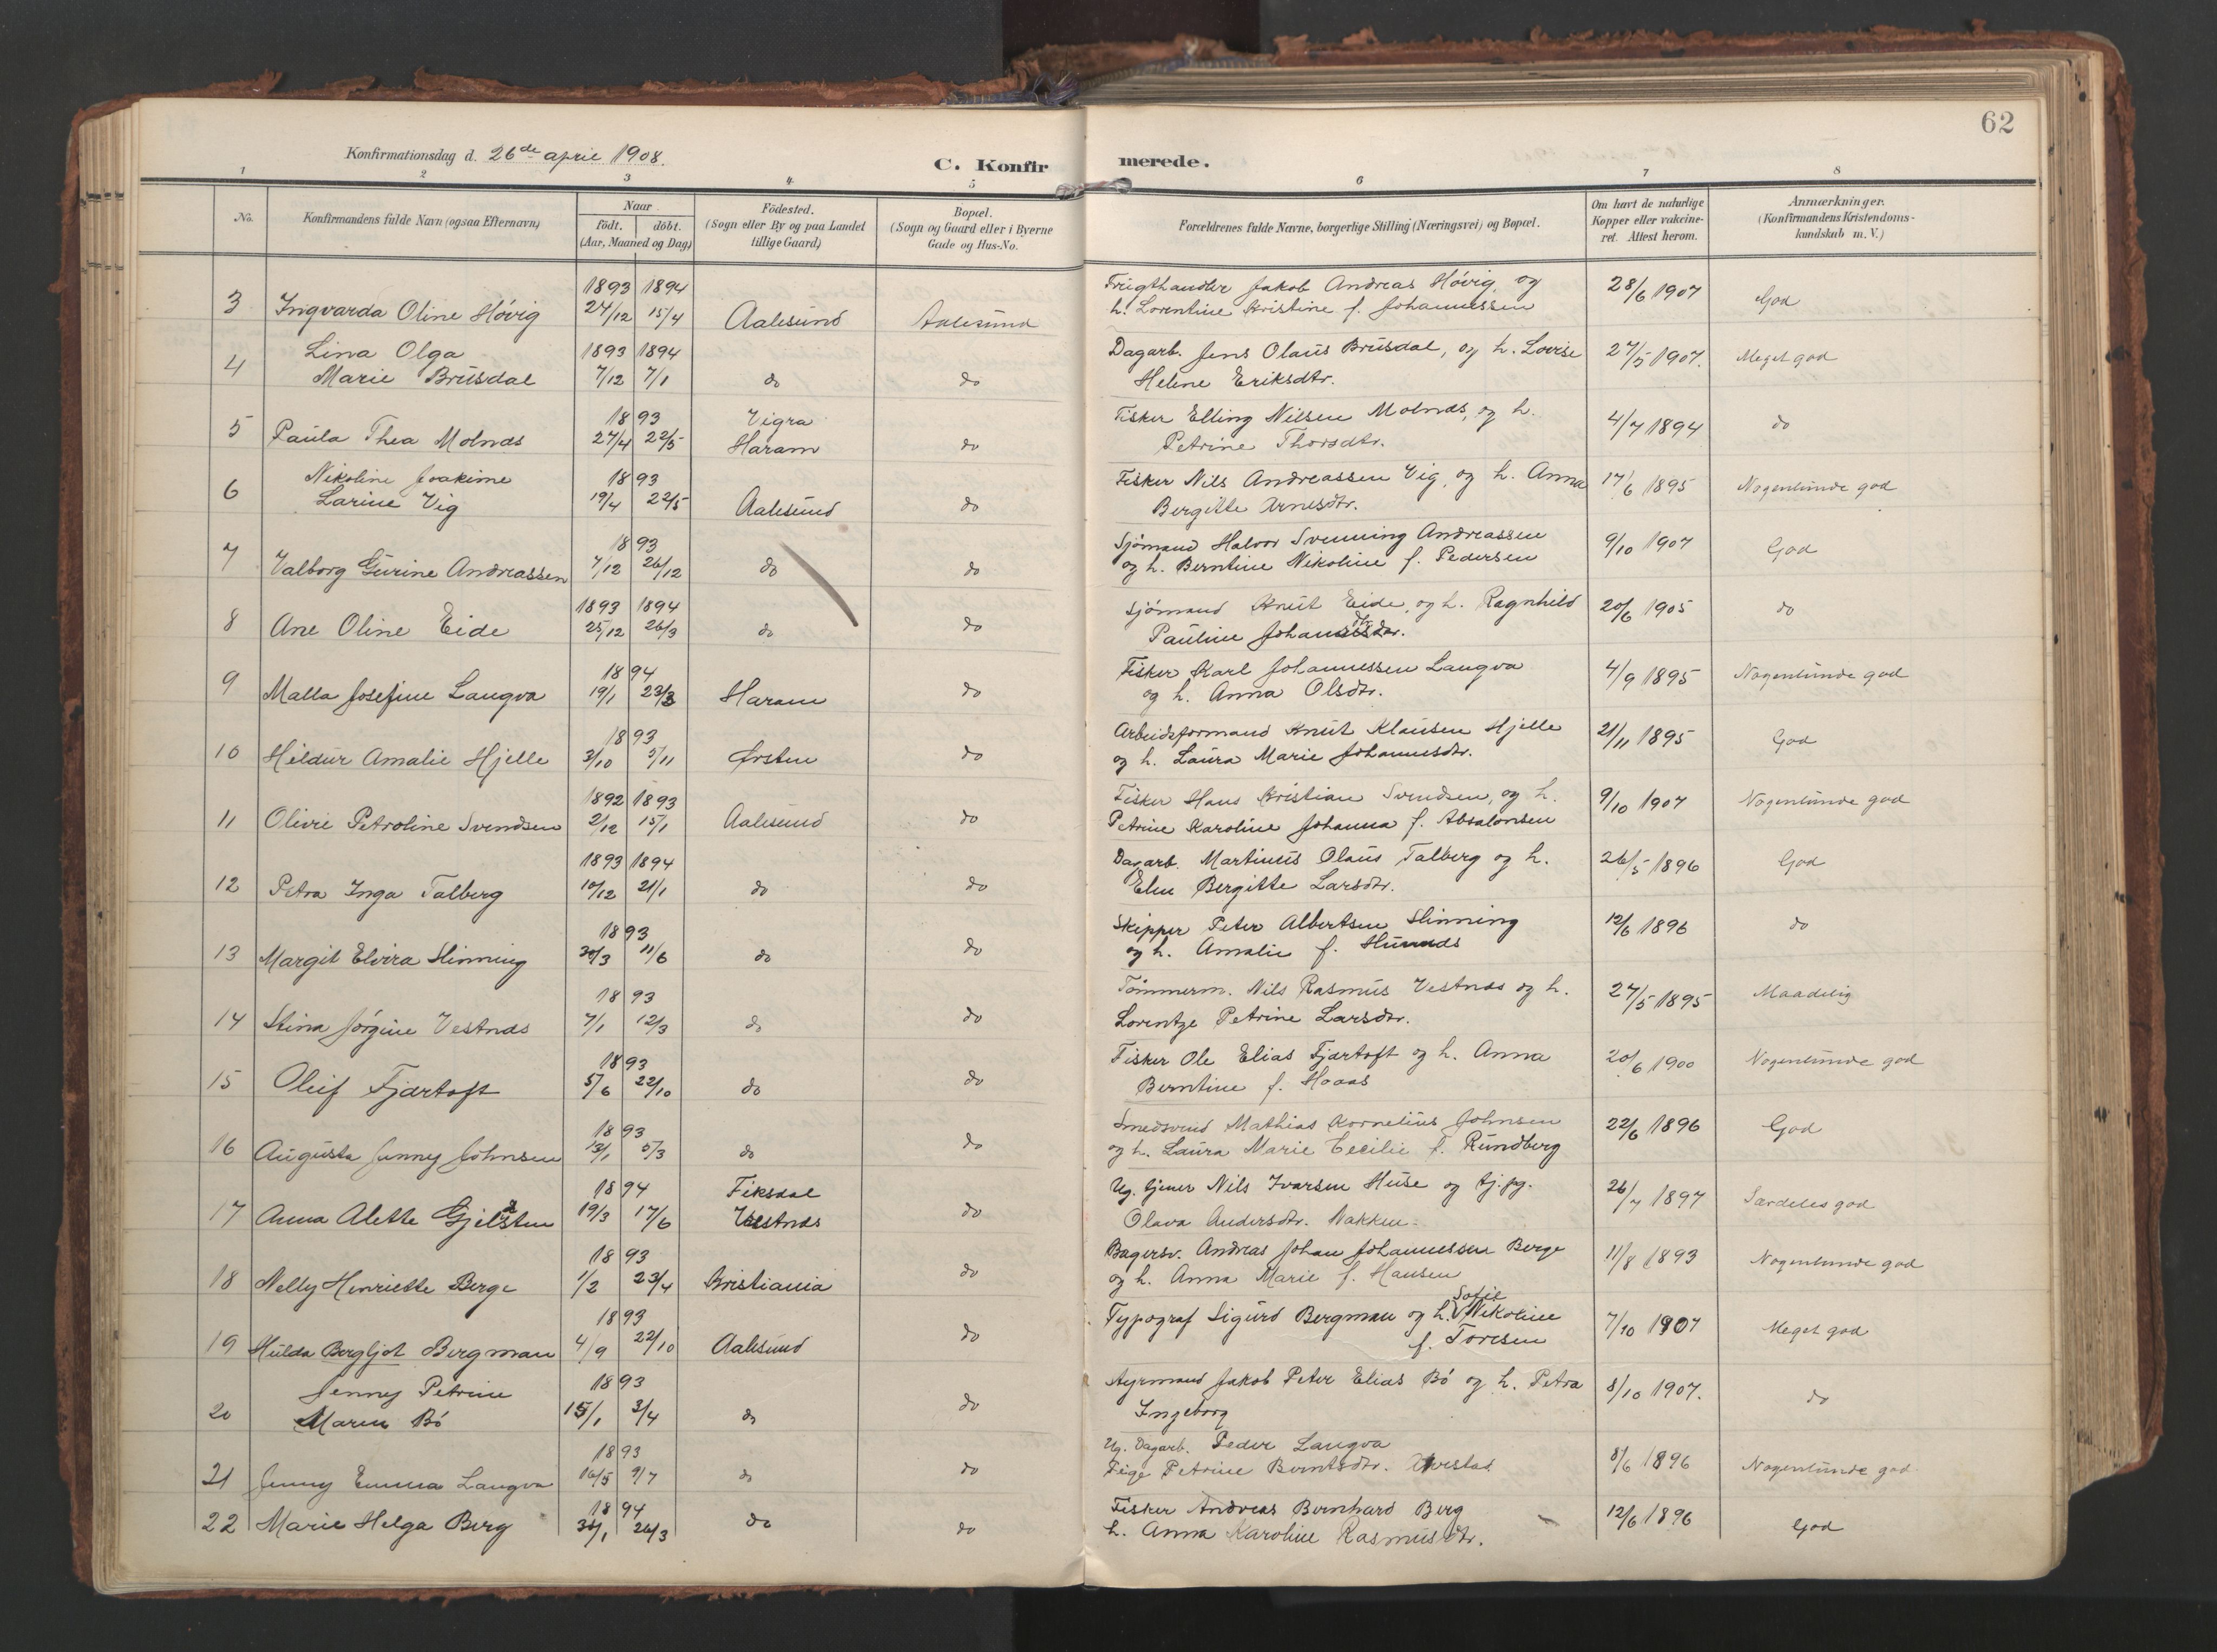 62
Konfirmationsdag d. 26de april 1908.
C. Konfirmerede.
1 2 3 4 5 6 7 8
No.
Konfirmandens fulde Navn (ogsaa Efternavn)
Naar
födt. döbt.
(Aar, Maaned og Dag)
Födested.
(Sogn eller By og paa Landet
tillige Gaard)
Bopæl.
(Sogn og Gaard eller i Byerne
Gade og Hus-No.
Forældrenes fulde Navne, borgerlige Stilling (Næringsvei) og Bopæl.
Om havt de naturlige
Kopper eller vakcine-
ret. Attest herom.
Anmærkninger.
(Konfirmandens Kristendoms-
kundskab m. V.)
1893 1894 Frugthandler Jakob Andreas Hövig, og
3 Ingvarda Oline Hövig 24/12 15/4 Aalesund Aalesund h. Lorentine Kristine f. Johannessen 28/6 1907 God
Lina Olga 1893 1894 Dagarb. Jens Olaus Brusdal, og h. Lovise
4 Marie Brusdal 7/12 7/1 do do Helene Eriksdtr. 27/5 1907. Meget god
1893 Vigra Fisker Elling Nilsen Molnæs, og h.
5 Paula Thea Molnæs 27/4 22/5 Haram do Petrine Thorsdtr. 4/7 1894 do
Nikoline Joakime 1893 Fisker Nils Andreassen Vig, og h. Anna
6 Larine Vig 19/4 22/5 Aalesund do Bergitte Arnesdtr. 17/6 1895 Nogenlunde god
1893 Sjömand Halvor Svenning Andreassen
7 Valborg Gurine Andreassen 7/12 26/12 do do og h. Berntine Nikoline f. Pedersen 9/10 1907 God
1893 1894 Sjömand Knut Eide, og h. Ragnhild
8 Ane Oline Eide 25/12 26/3 do do Pauline 20/6 1905 do
1894 Fisker Karl Johannessen Langva
9 Malla Josefine Langva 19/1 23/3 Haram do og h. Anna Olsdtr. 4/9 1895 Nogenlunde god
1893 Arbeidsformand Knut Klausen Hjelle
10 Hildur Amalie Hjelle 3/10 5/11 Örsten do og h. Laura Marie Johannesdtr. 21/11 1895 God
1892 1893 Fisker Hans Kristian Svendsen, og h.
11 Olivie Petroline Svendsen 2/12 15/1 Aalesund do Petrine Karoline Johanna f. Absalonsen 9/10 1907 Nogenlunde god
1893 1894 Dagarb. Martinus Olaus Talberg og h.
12 Petra Inga Talberg 10/12 21/1 do do Elen Bergitte Larsdtr. 26/5 1896 God
1893 Skipper Peter Albertsen Slinning
13 Margit Elvira Slinning 30/3 11/6 do do og h. Amalie f. 12/6 1896 do
1893 Tömmerm. Nils Rasmus Vestnæs og h.
14 Stina Jörgine Vestnæs 7/1 12/3 do do Lorentze Petrine Larsdtr. 27/5 1895 Maadelig
1893 Fisker Ole Elias Fjærtoft og h. Anna
15 Oleif Fjærtoft 5/6 22/10 do do Berntine f. Hoaas 20/6 1900 Nogenlunde god
1893 Smedsvend Mathias Kornelius Johnsen
16 Augusta Jenny Johnsen 13/1 5/3 do do og h. Laura Marie Cecilie f. Rundberg 22/6 1896 God
1894 Fiksdal Ug. tjener Nils Ivarsen Huse og tj.pg.
17 Anna Alette Gjelsten 19/3 17/6 Vestnæs do Olava Andersdtr. Nakken 26/7 1897 Særdeles god
1893 Bagersv. Andreas Johan Johannessen Berge
18 Nelly Henriette Berge 1/2 23/4 Kristiania do og h. Anna Marie f. Hansen 11/8 1893 Nogenlunde god
1893 Typograf Sigurd Bergman og h. Sofie Nikoline
19 Hulda Bergljot Bergman 4/9 22/10 Aalesund do f. Toresen 7/10 1907 Meget god
Jenny Petrine 1893 Styrmand Jakob Peter Elias Bö og h. Petra
20 Maren Bö 15/1 3/4 do do Ingeborg 8/10 1907. do
1893 Ug. Dagarb. Peder Langva
21 Jenny Emma Langva 16/5 9/7 do do Pige Petrine Berntsdtr. 8/6 1896 Nogenlunde god
1894 Fisker Andreas Bernhard Berg
22 Marie Helga Berg 30/1 26/3 do do h. Anna Karoline Rasmusdtr. 12/6 1896 God